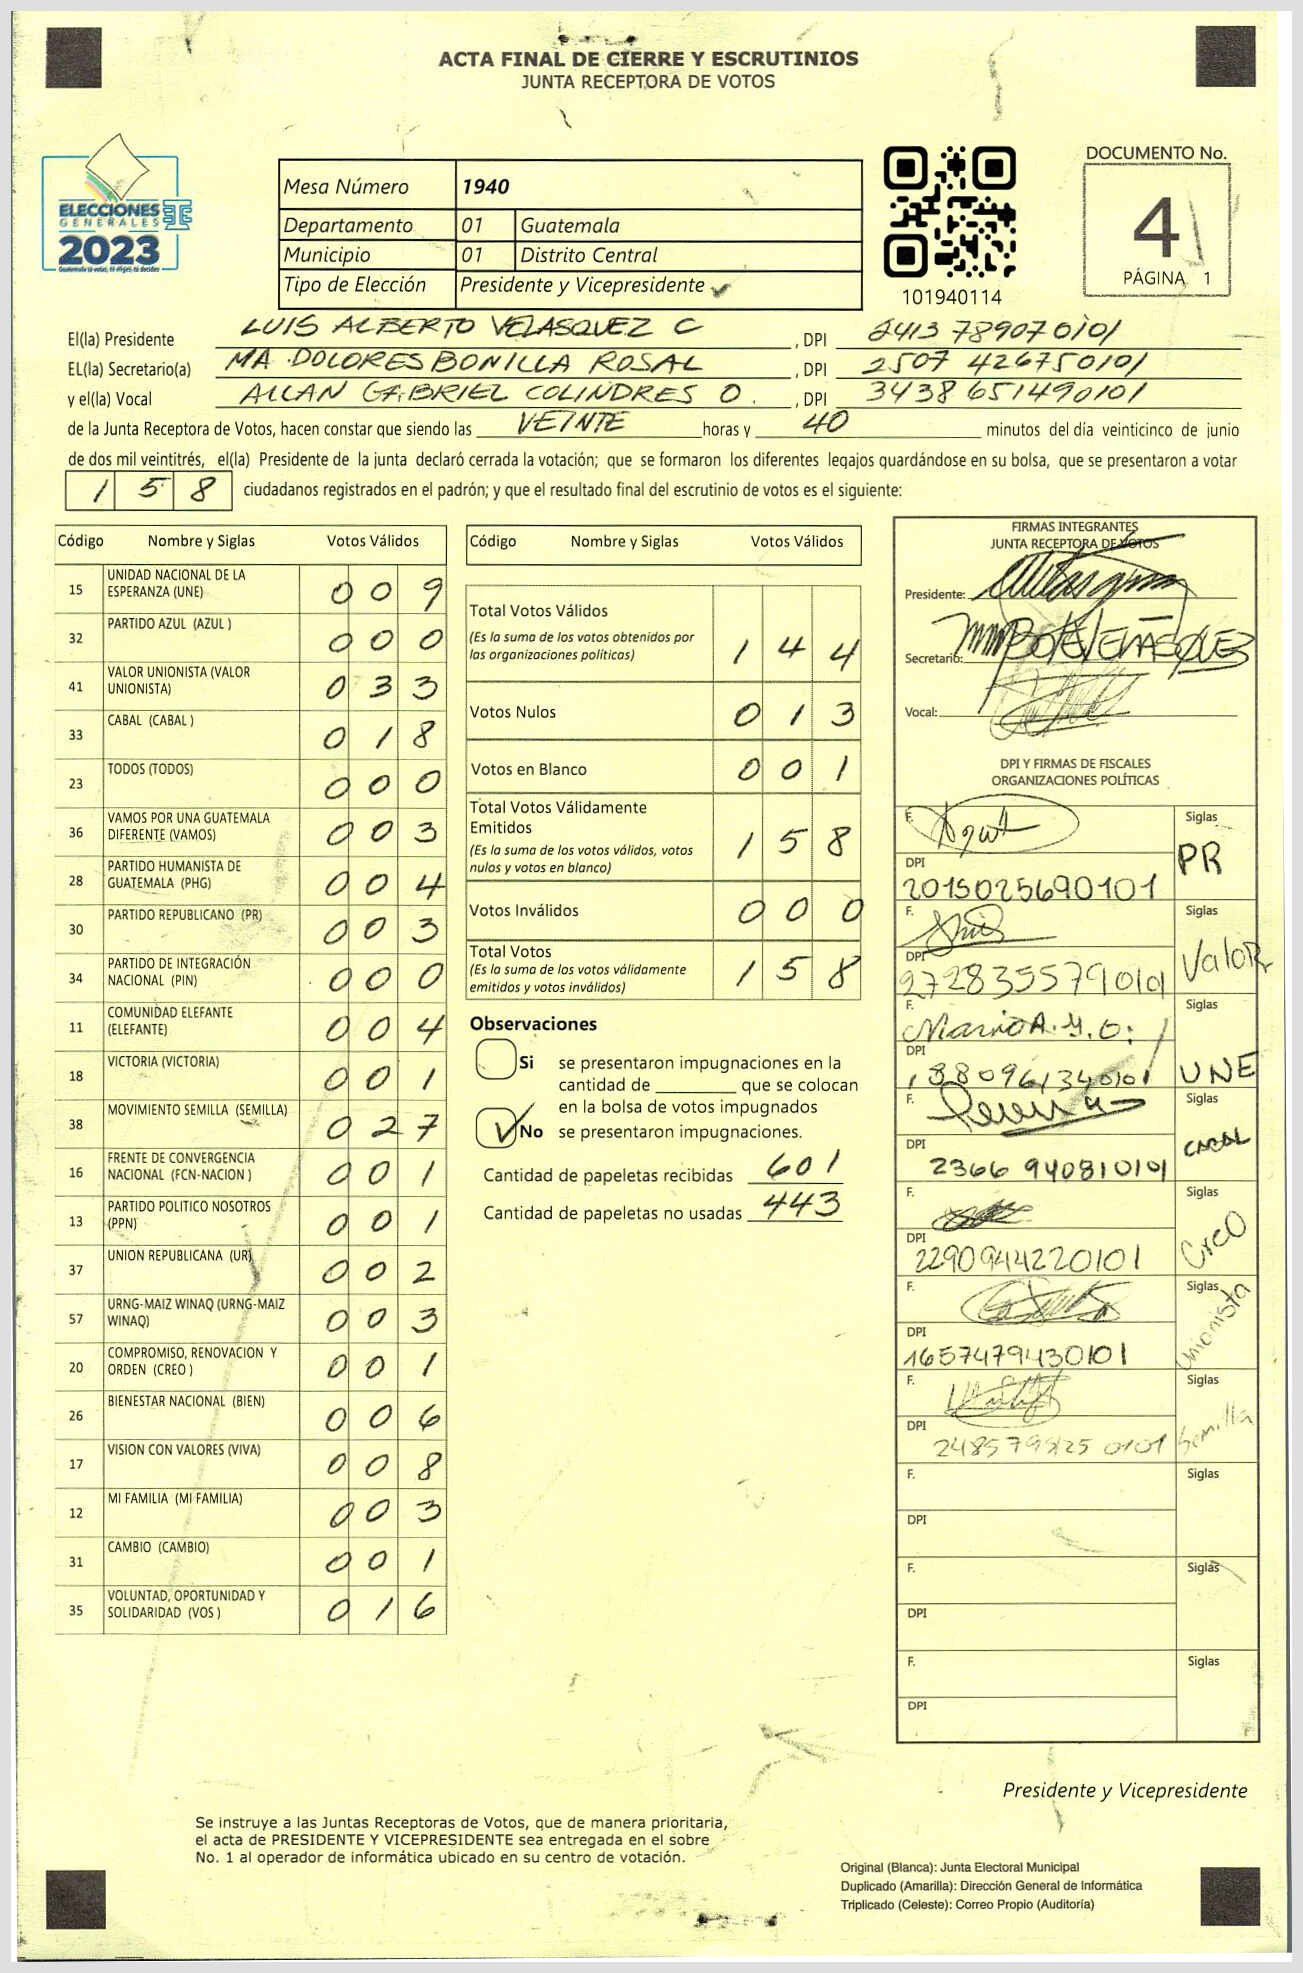 ACTA FINAL DE CIERRE Y ESCRUTINIOS
JUNTA RECEPTORA DE VOTOS
ELECCIONES
GENERALES
2023
Guatemala tú votas, tú eliges, tú decides
Mesa Número 1940
Departamento 01 Guatemala
Municipio 01 Distrito Central
Tipo de Elección Presidente y Vicepresidente
101940114
DOCUMENTO No.
4
PÁGINA 1
El(la) Presidente LUIS ALBERTO VELASQUEZ C , DPI 2413 78907 0101
EL(la) Secretario(a) MA DOLORES BONILLA ROSAL , DPI 2507 42675 0101
y el(la) Vocal ALLAN GABRIEL COLINDRES O. , DPI 3438 65149 0101
de la Junta Receptora de Votos, hacen constar que siendo las VEINTE horas y 40 minutos del día veinticinco de junio
de dos mil veintitrés, el(la) Presidente de la junta declaró cerrada la votación; que se formaron los diferentes legajos guardándose en su bolsa, que se presentaron a votar
158 ciudadanos registrados en el padrón; y que el resultado final del escrutinio de votos es el siguiente:
Código Nombre y Siglas Votos Válidos
15 UNIDAD NACIONAL DE LA ESPERANZA (UNE) 009
32 PARTIDO AZUL (AZUL ) 000
41 VALOR UNIONISTA (VALOR UNIONISTA) 033
33 CABAL (CABAL ) 018
23 TODOS (TODOS) 000
36 VAMOS POR UNA GUATEMALA DIFERENTE (VAMOS) 003
28 PARTIDO HUMANISTA DE GUATEMALA (PHG) 004
30 PARTIDO REPUBLICANO (PR) 003
34 PARTIDO DE INTEGRACIÓN NACIONAL (PIN) 000
11 COMUNIDAD ELEFANTE (ELEFANTE) 004
18 VICTORIA (VICTORIA) 001
38 MOVIMIENTO SEMILLA (SEMILLA) 027
16 FRENTE DE CONVERGENCIA NACIONAL (FCN-NACION ) 001
13 PARTIDO POLITICO NOSOTROS (PPN) 001
37 UNION REPUBLICANA (UR) 002
57 URNG-MAIZ WINAQ (URNG-MAIZ WINAQ) 003
20 COMPROMISO, RENOVACION Y ORDEN (CREO ) 001
26 BIENESTAR NACIONAL (BIEN) 006
17 VISION CON VALORES (VIVA) 008
12 MI FAMILIA (MI FAMILIA) 003
31 CAMBIO (CAMBIO) 001
35 VOLUNTAD, OPORTUNIDAD Y SOLIDARIDAD (VOS ) 016
Código Nombre y Siglas Votos Válidos
Total Votos Válidos 144
(Es la suma de los votos obtenidos por
las organizaciones políticas)
Votos Nulos 013
Votos en Blanco 001
Total Votos Válidamente
Emitidos 158
(Es la suma de los votos válidos, votos
nulos y votos en blanco)
Votos Inválidos 000
Total Votos 158
(Es la suma de los votos válidamente
emitidos y votos inválidos)
Observaciones
Si se presentaron impugnaciones en la
cantidad de ________ que se colocan
en la bolsa de votos impugnados
No se presentaron impugnaciones.
Cantidad de papeletas recibidas 601
Cantidad de papeletas no usadas 443
FIRMAS INTEGRANTES
JUNTA RECEPTORA DE VOTOS
Presidente:
Secretario:
Vocal:
DPI Y FIRMAS DE FISCALES
ORGANIZACIONES POLÍTICAS
F. Siglas PR
DPI 2015025690101
F. Siglas Valor
DPI 2728355790101
F. Siglas UNE
DPI
F. Siglas CABAL
DPI 2366 94081 0101
F. Siglas CREO
DPI 2290944220101
F. Siglas Unionista
DPI 1657479430101
F. Siglas Semilla
DPI
F. Siglas
DPI
F. Siglas
DPI
F. Siglas
DPI
Presidente y Vicepresidente
Se instruye a las Juntas Receptoras de Votos, que de manera prioritaria,
el acta de PRESIDENTE Y VICEPRESIDENTE sea entregada en el sobre
No. 1 al operador de informática ubicado en su centro de votación.
Original (Blanca): Junta Electoral Municipal
Duplicado (Amarilla): Dirección General de Informática
Triplicado (Celeste): Correo Propio (Auditoría)